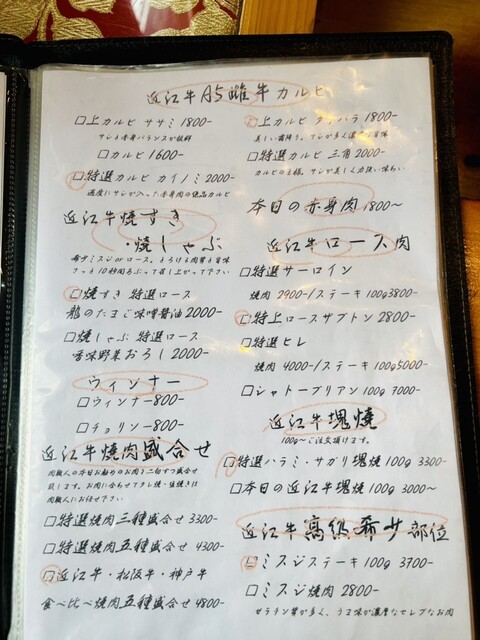 近江牛A5雌牛カルビ
□上カルビ ササミ 1800-
サシと赤身バランスが抜群
□カルビ 1600-
□特選カルビ カイノミ 2000-
適度にサシが入った赤身肉の絶品カルビ
近江牛焼すき
・焼しゃぶ
希少ミスジorロース。とろける肉質と旨味
さっと10秒間あぶって召し上がって下さい
□焼すき 特選ロース
龍のたまご味噌醤油 2000-
□焼しゃぶ 特選ロース
香味野菜おろし 2000-
ウィンナー
□ウィンナー 800-
□チョリソー 800-
近江牛焼肉盛合せ
肉職人の本日お勧めのお肉を二種ずつ盛合せ
致します。お肉に合わせてタレ焼・塩焼きは
肉職人にお任せ下さい
□特選焼肉三種盛合せ 3300-
□特選焼肉五種盛合せ 4300-
□近江牛・松阪牛・神戸牛
食べ比べ焼肉五種盛合せ 4800-
□上カルビ タテバラ 1800-
美しい霜降り。サシが多く濃厚な旨味
□特選カルビ 三角 2000-
カルビの王様。サシが美しく力強い味わい
本日の赤身肉 1800~
近江牛ロース肉
□特選サーロイン
焼肉 2900-/ステーキ100g3800-
□特上ロースザブトン 2800-
□特選ヒレ
焼肉 4000-/ステーキ100g5000-
□シャトーブリアン100g 7000-
近江牛塊焼
100g~ご注文頂けます。
□特選ハラミ・サガリ塊焼 100g 3300-
□本日の近江牛塊焼 100g 3000~
近江牛高級希少部位
□ミスジステーキ 100g 3700-
□ミスジ焼肉 2800-
ゼラチン質が多く、うま味が濃厚なセレブなお肉